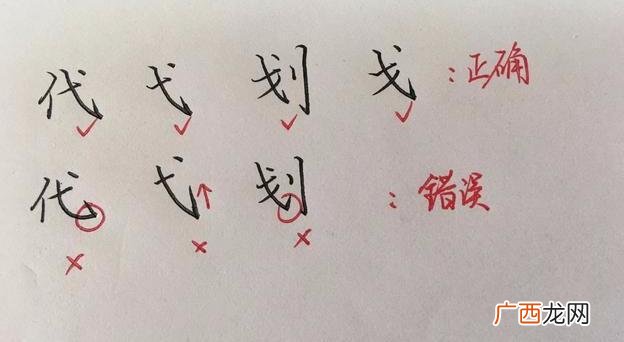 代 弋 划 戈 : 正确
代 弋 划 : 错误
广西龙网